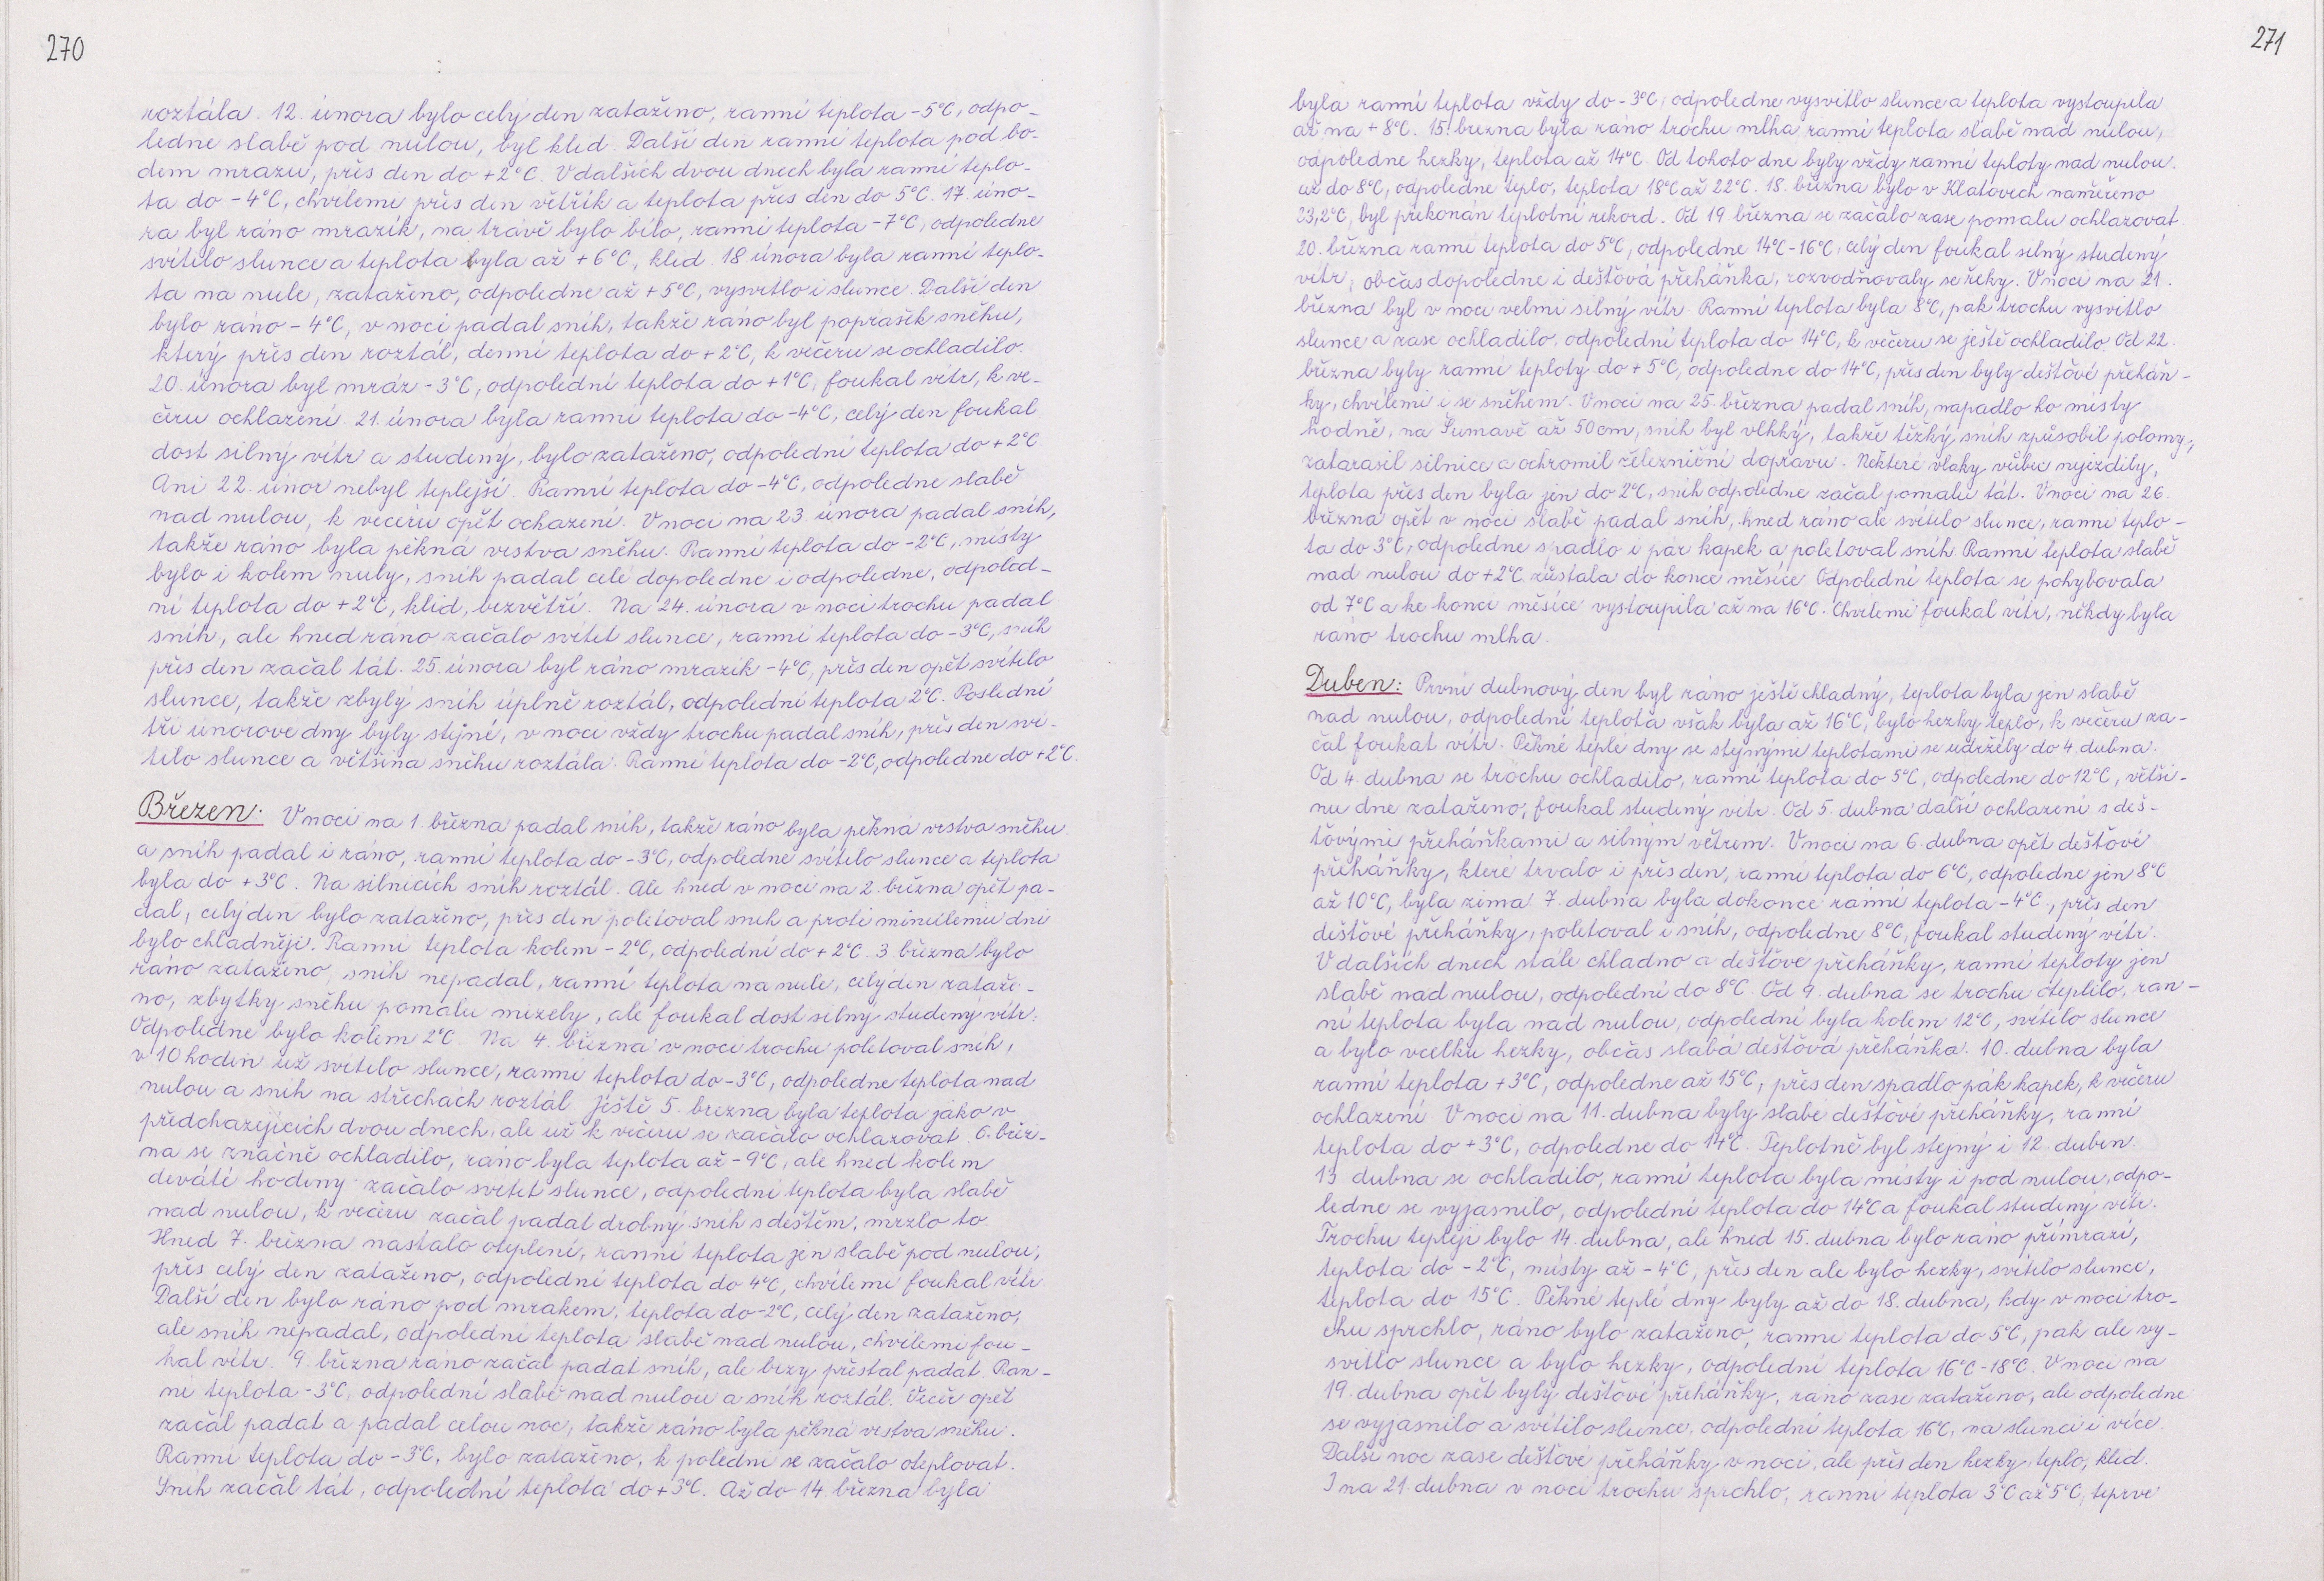 270
roztála. 12. února bylo celý den zataženo, ranní teplota -5°C, odpo-
ledne slabě pod nulou, byl klid. Další den ranní teplota pod bo-
dem mrazu, přes den do +2°C. V dalších dvou dnech byla ranní teplo-
ta do -4°C, chvílemi přes den větřík a teplota přes den do 5°C. 17. úno-
ra byl ráno mrazík, na trávě bylo bílo, ranní teplota -7°C, odpoledne
svítilo slunce a teplota byla až +6°C, klid. 18. února byla ranní teplo-
ta na nule, zataženo, odpoledne až +5°C, vysvitlo i slunce. Další den
bylo ráno -4°C, v noci padal sníh, takže ráno byl poprašek sněhu,
který přes den roztál, denní teplota do +2°C, k večeru se ochladilo.
20. února byl mráz -3°C, odpolední teplota do +1°C, foukal vítr, k ve-
čeru ochlazení. 21. února byla ranní teplota do -4°C, celý den foukal
dost silný vítr a studený, bylo zataženo, odpolední teplota do +2°C.
Ani 22. únor nebyl teplejší. Ranní teplota do -4°C, odpoledne slabě
nad nulou, k večeru opět ochazení. V noci na 23. února padal sníh,
takže ráno byla pěkná vrstva sněhu. Ranní teplota do -2°C, místy
bylo i kolem nuly, sníh padal celé dopoledne i odpoledne, odpoled-
ní teplota do +2°C, klid, bezvětří. Na 24. února v noci trochu padal
sníh, ale hned ráno začalo svítet slunce, ranní teplota do -3°C, sníh
přes den začal tát. 25. února byl ráno mrazík -4°C, přes den opět svítilo
slunce, takže zbylý sníh úplně roztál, odpolední teplota 2°C. Poslední
tři únorové dny byly stejné, v noci vždy trochu padal sníh, přes den sví-
tilo slunce a většina sněhu roztála. Ranní teplota do -2°C, odpoledne do +2°C.
Březen: V noci na 1. března padal sníh, takže ráno byla pěkná vrstva sněhu
a sníh padal i ráno, ranní teplota do -3°C, odpoledne svítilo slunce a teplota
byla do +3°C. Na silnicích sníh roztál. Ale hned v noci na 2. března opět pa-
dal, celý den bylo zataženo, přes den poletoval sníh a proti minulému dni
bylo chladněji. Ranní teplota kolem -2°C, odpolední do +2°C. 3. března bylo
ráno zataženo, sníh nepadal, ranní teplota na nule, celý den zataže-
no, zbytky sněhu pomalu mizely, ale foukal dost silný studený vítr.
Odpoledne bylo kolem 2°C. Na 4. března v noci trochu poletoval sníh,
v 10 hodin už svítilo slunce, ranní teplota do -3°C, odpoledne teplota nad
nulou a sníh na střechách roztál. Ještě 5. března byla teplota jako v
předcházejících dvou dnech, ale už k večeru se začalo ochlazovat. 6. břez-
na se značně ochladilo, ráno byla teplota až -9°C, ale hned kolem
deváté hodiny začalo svítet slunce, odpolední teplota byla slabě
nad nulou, k večeru začal padal drobný sníh s deštěm, mrzlo to.
Hned 7. března nastalo oteplení, ranní teplota jen slabě pod nulou,
přes celý den zataženo, odpolední teplota do 4°C, chvílemi foukal vítr.
Další den bylo ráno pod mrakem, teplota do -2°C, celý den zataženo,
ale sníh nepadal, odpolední teplota slabě nad nulou, chvílemi fou-
kal vítr. 9. března ráno začal padat sníh, ale brzy přestal padat. Ran-
ní teplota -3°C, odpolední slabě nad nulou a sníh roztál. Večer opět
začal padat a padal celou noc, takže ráno byla pěkná vrstva sněhu.
Ranní teplota do -3°C, bylo zataženo, k poledni se začalo oteplovat.
Sníh začal tát, odpolední teplota do +3°C. Až do 14. března byla
271
byla ranní teplota vždy do -3°C, odpoledne vysvitlo slunce a teplota vystoupila
až na +8°C. 15. března byla ráno trochu mlha ranní teplota slabě nad nulou,
odpoledne hezky, teplota až 14°C. Od tohoto dne byly vždy ranní teploty nad nulou.
až do 8°C, odpoledne teplo, teplota 18°C až 22°C. 18. března bylo v Klatovech naměřeno
23,2°C, byl překonán teplotní rekord. Od 19. března se začalo zase pomalu ochlazovat.
20. března ranní teplota do 5°C, odpoledne 14°C-16°C, celý den foukal silný studený
vítr, občas dopoledne i dešťová přeháňka, rozvodňovaly se řeky. V noci na 21.
března byl v noci velmi silný vítr. Ranní teplota byla 8°C, pak trochu vysvitlo
slunce a zase ochladilo, odpolední teplota do 14°C, k večeru se ještě ochladilo. Od 22.
března byly ranní teploty do +5°C, odpoledne do 14°C, přes den byly dešťové přeháň-
ky, chvílemi i se sněhem. V noci na 25. března padal sníh, napadlo ho místy
hodně, na Šumavě až 50cm, sníh byl vlhký, takže těžký sníh způsobil polomy,
zatarasil silnice a ochromil železniční dopravu. Některé vlaky vůbec nejezdily,
teplota přes den byla jen do 2°C, sníh odpoledne začal pomalu tát. V noci na 26.
března opět v noci slabě padal sníh, hned ráno ale svítilo slunce, ranní teplo-
ta do 3°C, odpoledne spadlo i pár kapek a poletoval sníh. Ranní teplota slabě
nad nulou do +2°C zůstala do konce měsíce. Odpolední teplota se pohybovala
od 7°C a ke konci měsíce vystoupila až na 16°C. Chvílemi foukal vítr, někdy byla
ráno trochu mlha.
Duben: První dubnový den byl ráno ještě chladný, teplota byla jen slabě
nad nulou, odpolední teplota však byla až 16°C, bylo hezky teplo, k večeru za-
čal foukat vítr. Pěkné teplé dny se stejnými teplotami se udržely do 4. dubna.
Od 4. dubna se trochu ochladilo, ranní teplota do 5°C, odpoledne do 12°C, větši-
nu dne zataženo, foukal studený vítr. Od 5. dubna další ochlazení s deš-
ťovými přeháňkami a silným větrem. V noci na 6. dubna opět dešťové
přeháňky, které trvalo i přes den, ranní teplota do 6°C, odpoledne jen 8°C
až 10°C, byla zima. 7. dubna byla dokonce ranní teplota -4°C, přes den
dešťové přeháňky, poletoval i sníh, odpoledne 8°C, foukal studený vítr.
V dalších dnech stále chladno a dešťové přeháňky, ranní teploty jen
slabě nad nulou, odpolední do 8°C. Od 9. dubna se trochu oteplilo, ran-
ní teplota byla nad nulou, odpolední byla kolem 12°C, svítilo slunce
a bylo vcelku hezky, občas slabá dešťová přeháňka. 10. dubna byla
ranní teplota +3°C, odpoledne až 15°C, přes den spadlo pák kapek, k večeru
ochlazení. V noci na 11. dubna byly slabé dešťové přeháňky, ranní
teplota do +3°C, odpoledne do 14°C. Teplotně byl stejný i 12. duben.
13 dubna se ochladilo, ranní teplota byla místy i pod nulou, odpo-
ledne se vyjasnilo, odpolední teplota do 14°C a foukal studený vítr.
Trochu tepleji bylo 14. dubna, ale hned 15. dubna bylo ráno přímrazí,
teplota do -2°C, místy až -4°C, přes den ale bylo hezky, svítilo slunce,
teplota do 15°C. Pěkné teplé dny byly až do 18. dubna, kdy v noci tro-
chu sprchlo, ráno bylo zataženo, ranní teplota do 5°C, pak ale vy-
svitlo slunce a bylo hezky, odpolední teplota 16°C-18°C. V noci na
19. dubna opět byly dešťové přeháňky, ráno zase zataženo, ale odpoledne
se vyjasnilo a svítilo slunce, odpolední teplota 16°C, na slunci i více.
Další noc zase dešťové přeháňky v noci, ale přes den hezky, teplo, klid.
I na 21. dubna v noci trochu sprchlo, ranní teplota 3°C až 5°C, teprve